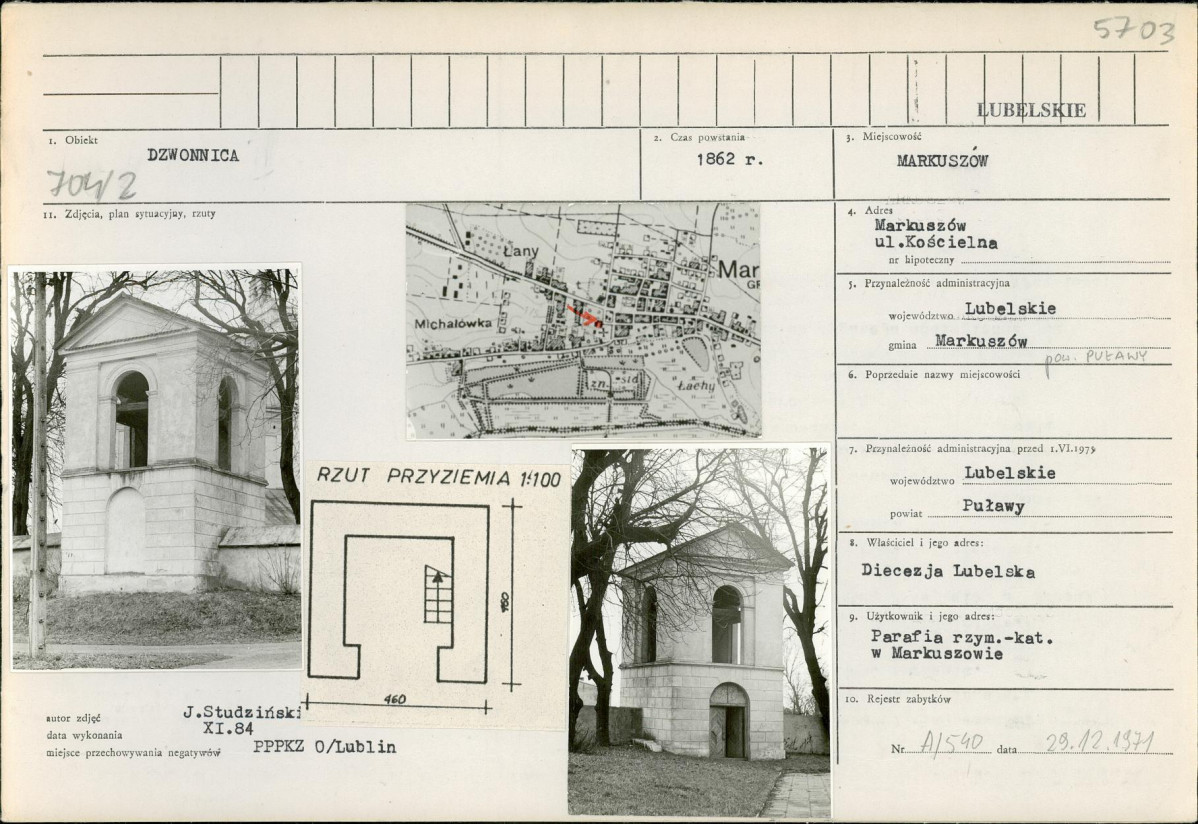 5703
LUBELSKIE
1. Obiekt
DZWONNICA
704/2
2. Czas powstania
1862 r.
3. Miejscowość
MARKUSZÓW
11. Zdjęcia, plan sytuacyjny, rzuty
4. Adres
Markuszów
ul.Kościelna
nr hipoteczny
5. Przynależność administracyjna
województwo Lubelskie
gmina Markuszów
pow. PUŁAWY
6. Poprzednie nazwy miejscowości
7. Przynależność administracyjna przed 1.VI.1975
województwo Lubelskie
powiat Puławy
8. Właściciel i jego adres:
Diecezja Lubelska
9. Użytkownik i jego adres:
Parafia rzym.-kat.
w Markuszowie
10. Rejestr zabytków
Nr A/540 data 29.12.1971
Łany
Mar
GR
Michałówka
zn.
Łachy
RZUT PRZYZIEMIA 1:100
460
460
autor zdjęć J.Studziński
data wykonania XI.84
miejsce przechowywania negatywów PPPKZ O/Lublin